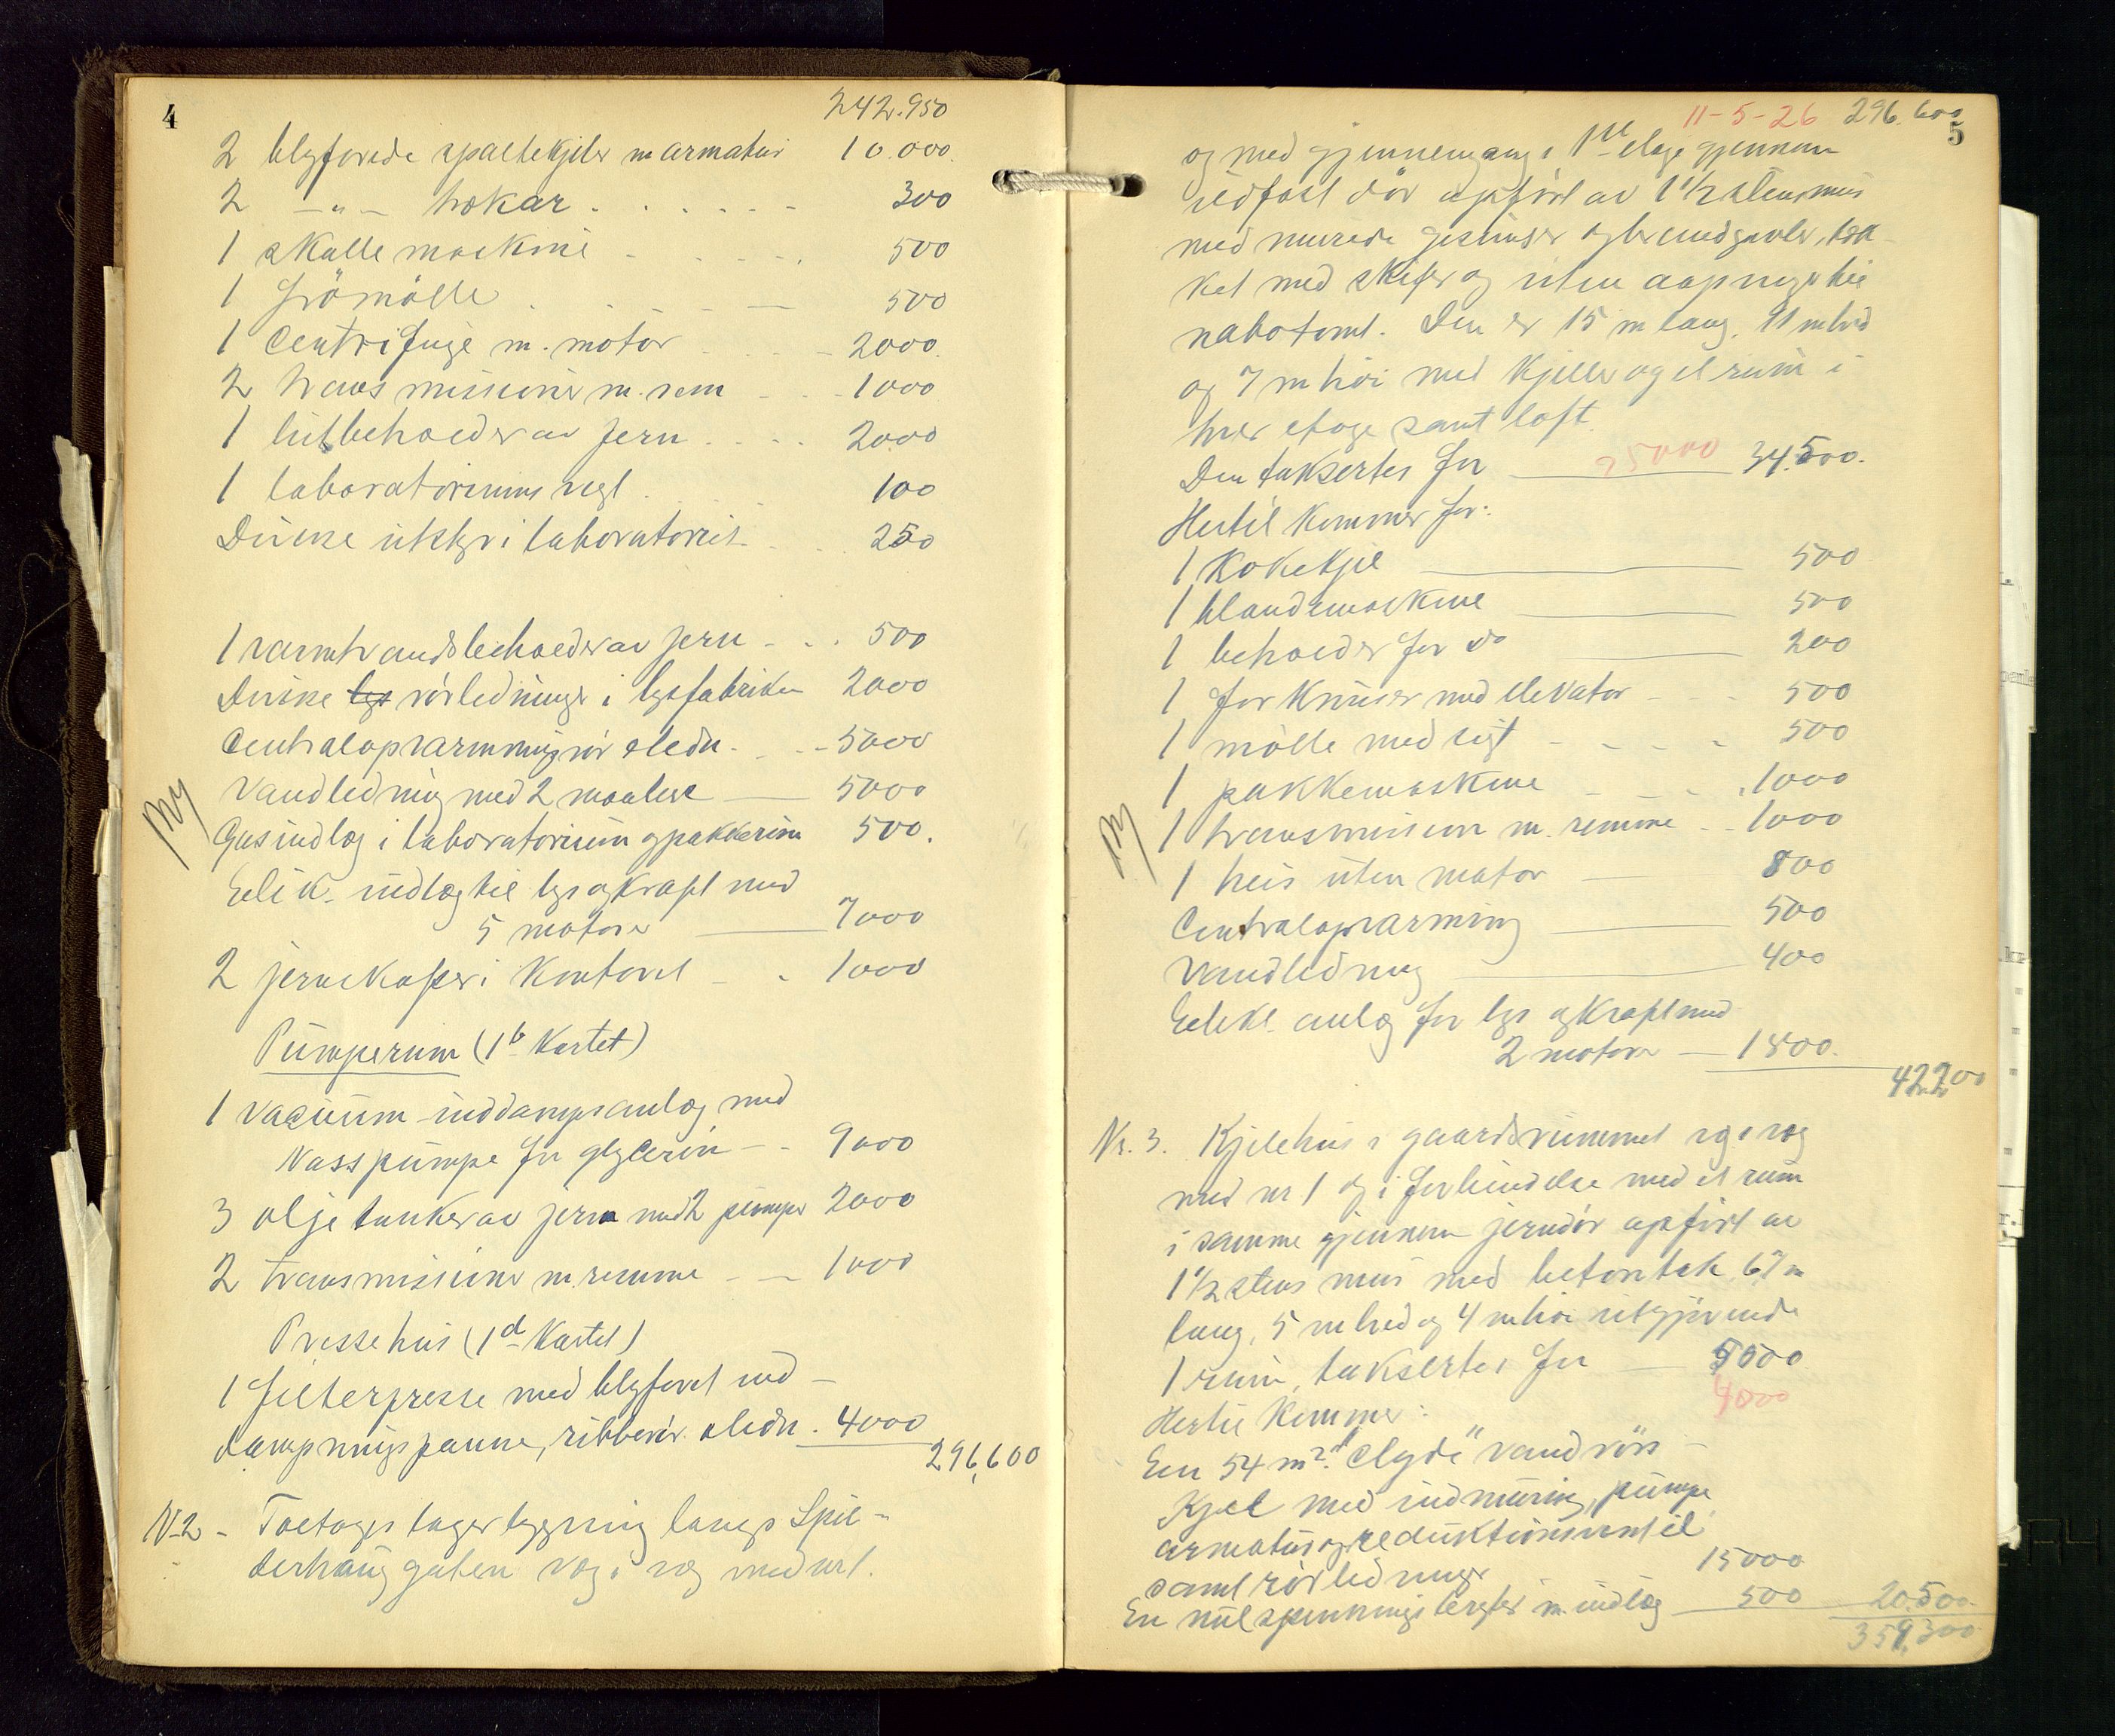 4
242.950
2 blyforede spaltekjeler m armatur 10.000.
2 -"- trokar 300
1 skallemaskine 500
1 frömölle 500
1 Centrifuge m. motor 2000.
2 transmissioner m. rem 1000
1 lutbeholder av jern 2000
1 laboratoriums vegt 100
Diverse utstyr i laboratoriet 250
1 varmtvandsbeholder av jern 500
Diverse lys rörledninger i lysfabriken 2000
Centralopvarmningsrör oledn. 5000
Vandledning med 2 maalere 5000
Ny
Gasindlæg i laboratorium og pakkerum 500.
Eelik. indlæg til lys og kraft med
5 motorer 7000
2 jernskaper i kontoret 1000
Pumperum (1b Kartet)
1 Vacuum-inddampsanlæg med
Vasspumpe for glycerin 9000
3 oljetanker av jern med 2 pumper 2000
2 transmissioner m. remme 1000
Pressehus (1d Kartet)
1 filterpresse med blyforet ind-
dampningspanne, ribberör oledn. 4000
296,600
N. 2 - Toetages lagerbygning langs Spil-
derhauggaten væg i væg med nr 1.
11-5-26 296.600
5
og med gjennemgang i 1ste etage gjennem
ildfast dör opfört av 1 1/2 stens mur
med murede gesimser og brandgavler, tæk-
ket med skifer og uten aapninger til
nabotomt. Den er 15 m lang, 11 m bred
og 7 m höi med kjeller og et rum i
hver etage samt loft.
Den taksertes for 25000 34.500.
Hertil kommer for:
1 Kokekjel 500
1 blandemaskine 500
1 beholder for do 200
1 forknuser med elevator 500
1 mölle med sigt 500
1 pakkemaskine 1000
Ny
1 transmission m. remme 1000
1 heis uten motor 800
Centralopvarming 500
Vandledning 400
Eelekt. anlæg for lys og kraft med
2 motorer 1800.
42200
Nr. 3. Kjelehus i gaardsrummet væg i væg
med nr 1 og i forbindelse med et rum
i samme gjennem jerndör opfört av
1 1/2 stens mur med betontak, 6,7 m
lang, 5 m bred og 4 m höi utgjörende
1 rum, taksertes for 5000
4000
Hertil kommer:
En 54 m2. "Clyde" vandrörs-
kjel med indmuring, pumpe,
armatur og reduktionsventil
samt rörledninger 15000
En nulspenningsbryter m. indlæg 500 20.500.
359,300